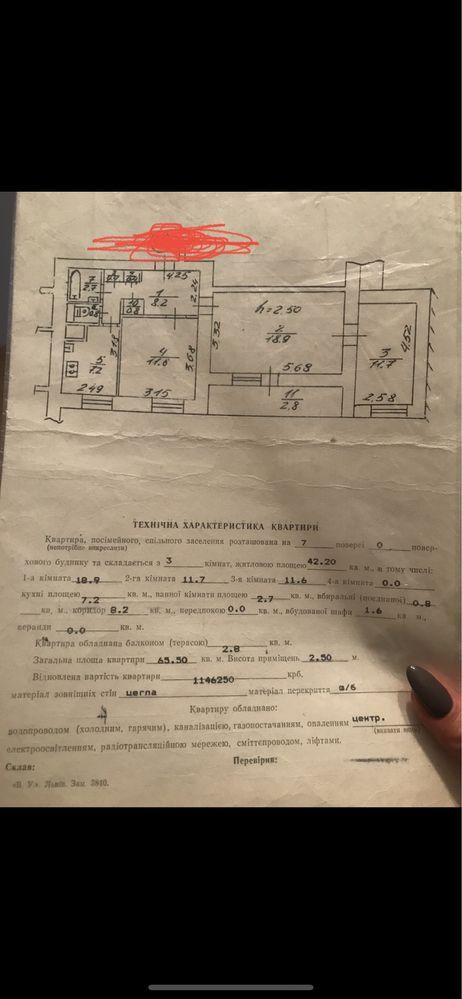 4.25
7
2.7
1
8.2
2.24
10
0.8
h=2.50
2
18.9
5.32
3.18
4
11.6
3.68
3
11.7
4.52
5
7.2
5.68
2.49
3.15
11
2.8
2.58
ТЕХНІЧНА ХАРАКТЕРИСТИКА КВАРТИРИ
Квартира, посімейного, спільного заселення розташована на 7 поверсі 0 повер-
(непотрібне викреслити)
хового будинку та складається з 3 кімнат, житловою площею 42.20 кв. м., в тому числі:
1-а кімната 18.9 2-га кімната 11.7 3-я кімната 11.6 4-а кімната 0.0
кухні площею 7.2 кв. м., ванної кімнати площею 2.7 кв. м., вбиральні (поєднаної) 0.8
кв. м., коридор 8.2 кв. м., передпокою 0.0 кв. м., вбудованої шафи 1.6 кв м.,
веранди 0.0 кв. м.
Квартира обладнана балконом (терасою) 2.8 кв. м.
Загальна площа квартири 65.50 кв. м. Висота приміщень 2.50 м.
Відновлена вартість квартири 1146250 крб.
матеріал зовнішніх стін цегла матеріал перекриття з/б
Квартиру обладнано:
водопроводом (холодним, гарячим), каналізацією, газопостачанням, опаленням центр.
(вказати яким)
електроосвітленням, радіотрансляційною мережею, сміттєпроводом, ліфтами.
Склав: Перевірив:
«В. У.» Львів. Зам. 3840.